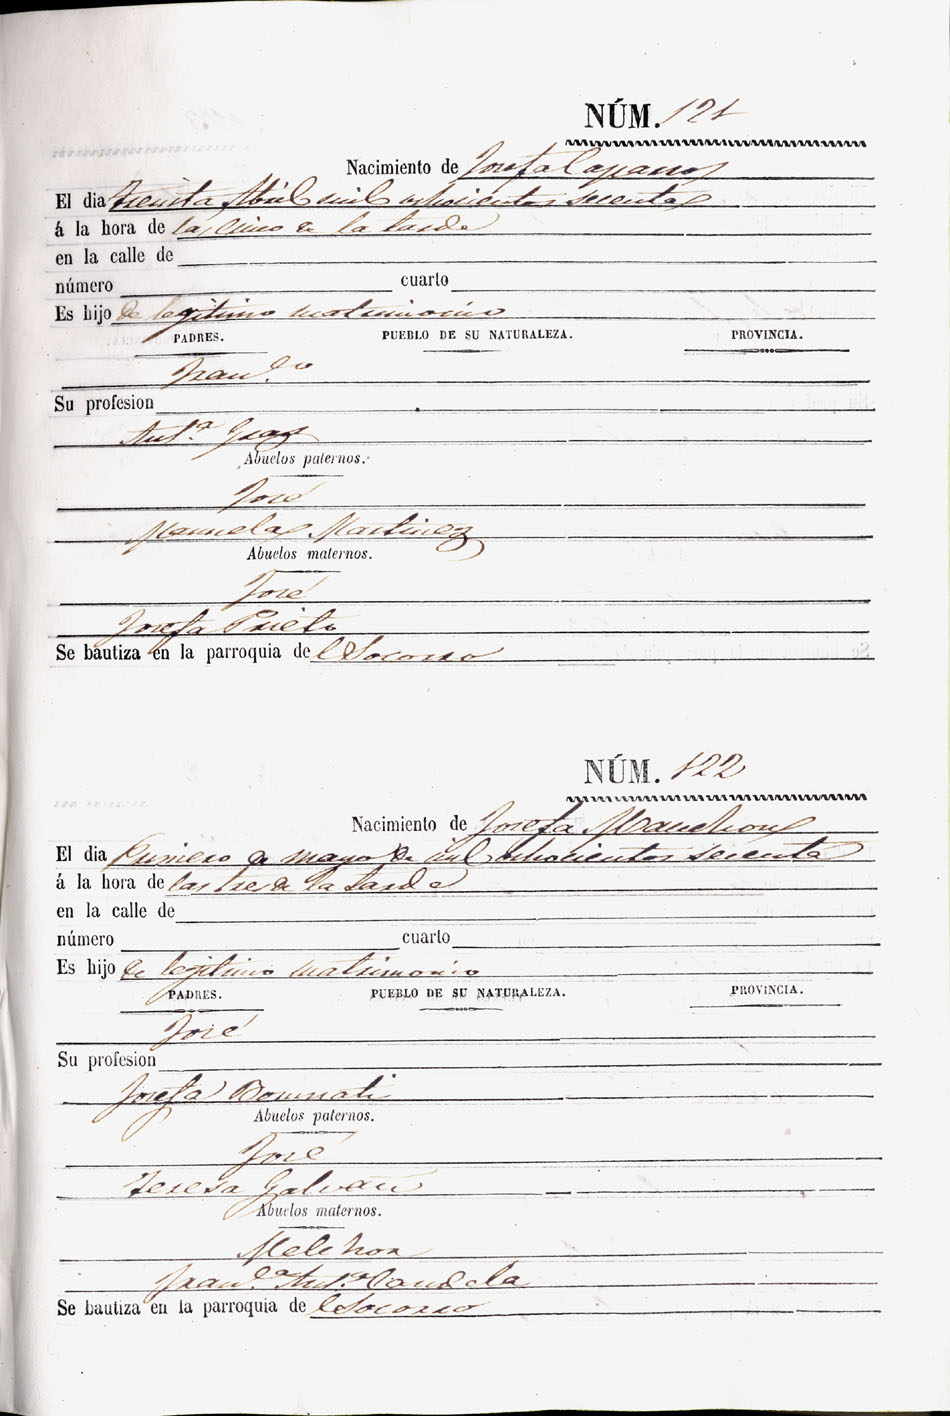 NÚM. 121
Nacimiento de Josefa Caparros
El dia treinta Abril mil ochocientos secenta
á la hora de las cinco de la tarde
en la calle de
número cuarto
Es hijo de legitimo matrimonio
PADRES. PUEBLO DE SU NATURALEZA. PROVINCIA.
Fran.co
Su profesion
Ant.a
Abuelos paternos.
José
Manuela Martinez
Abuelos maternos.
José
Josefa Prieto
Se bautiza en la parroquia de l Socorro
NÚM. 122
Nacimiento de Josefa Manchon
El dia primero de mayo de mil ochocientos secenta
á la hora de las tres de la tarde
en la calle de
número cuarto
Es hijo de legitimo matrimonio
PADRES. PUEBLO DE SU NATURALEZA. PROVINCIA.
José
Su profesion
Josefa
Abuelos paternos.
José
Teresa Galvañ
Abuelos maternos.
Melchor
Fran.ca Ant.a Candela
Se bautiza en la parroquia de l Socorro